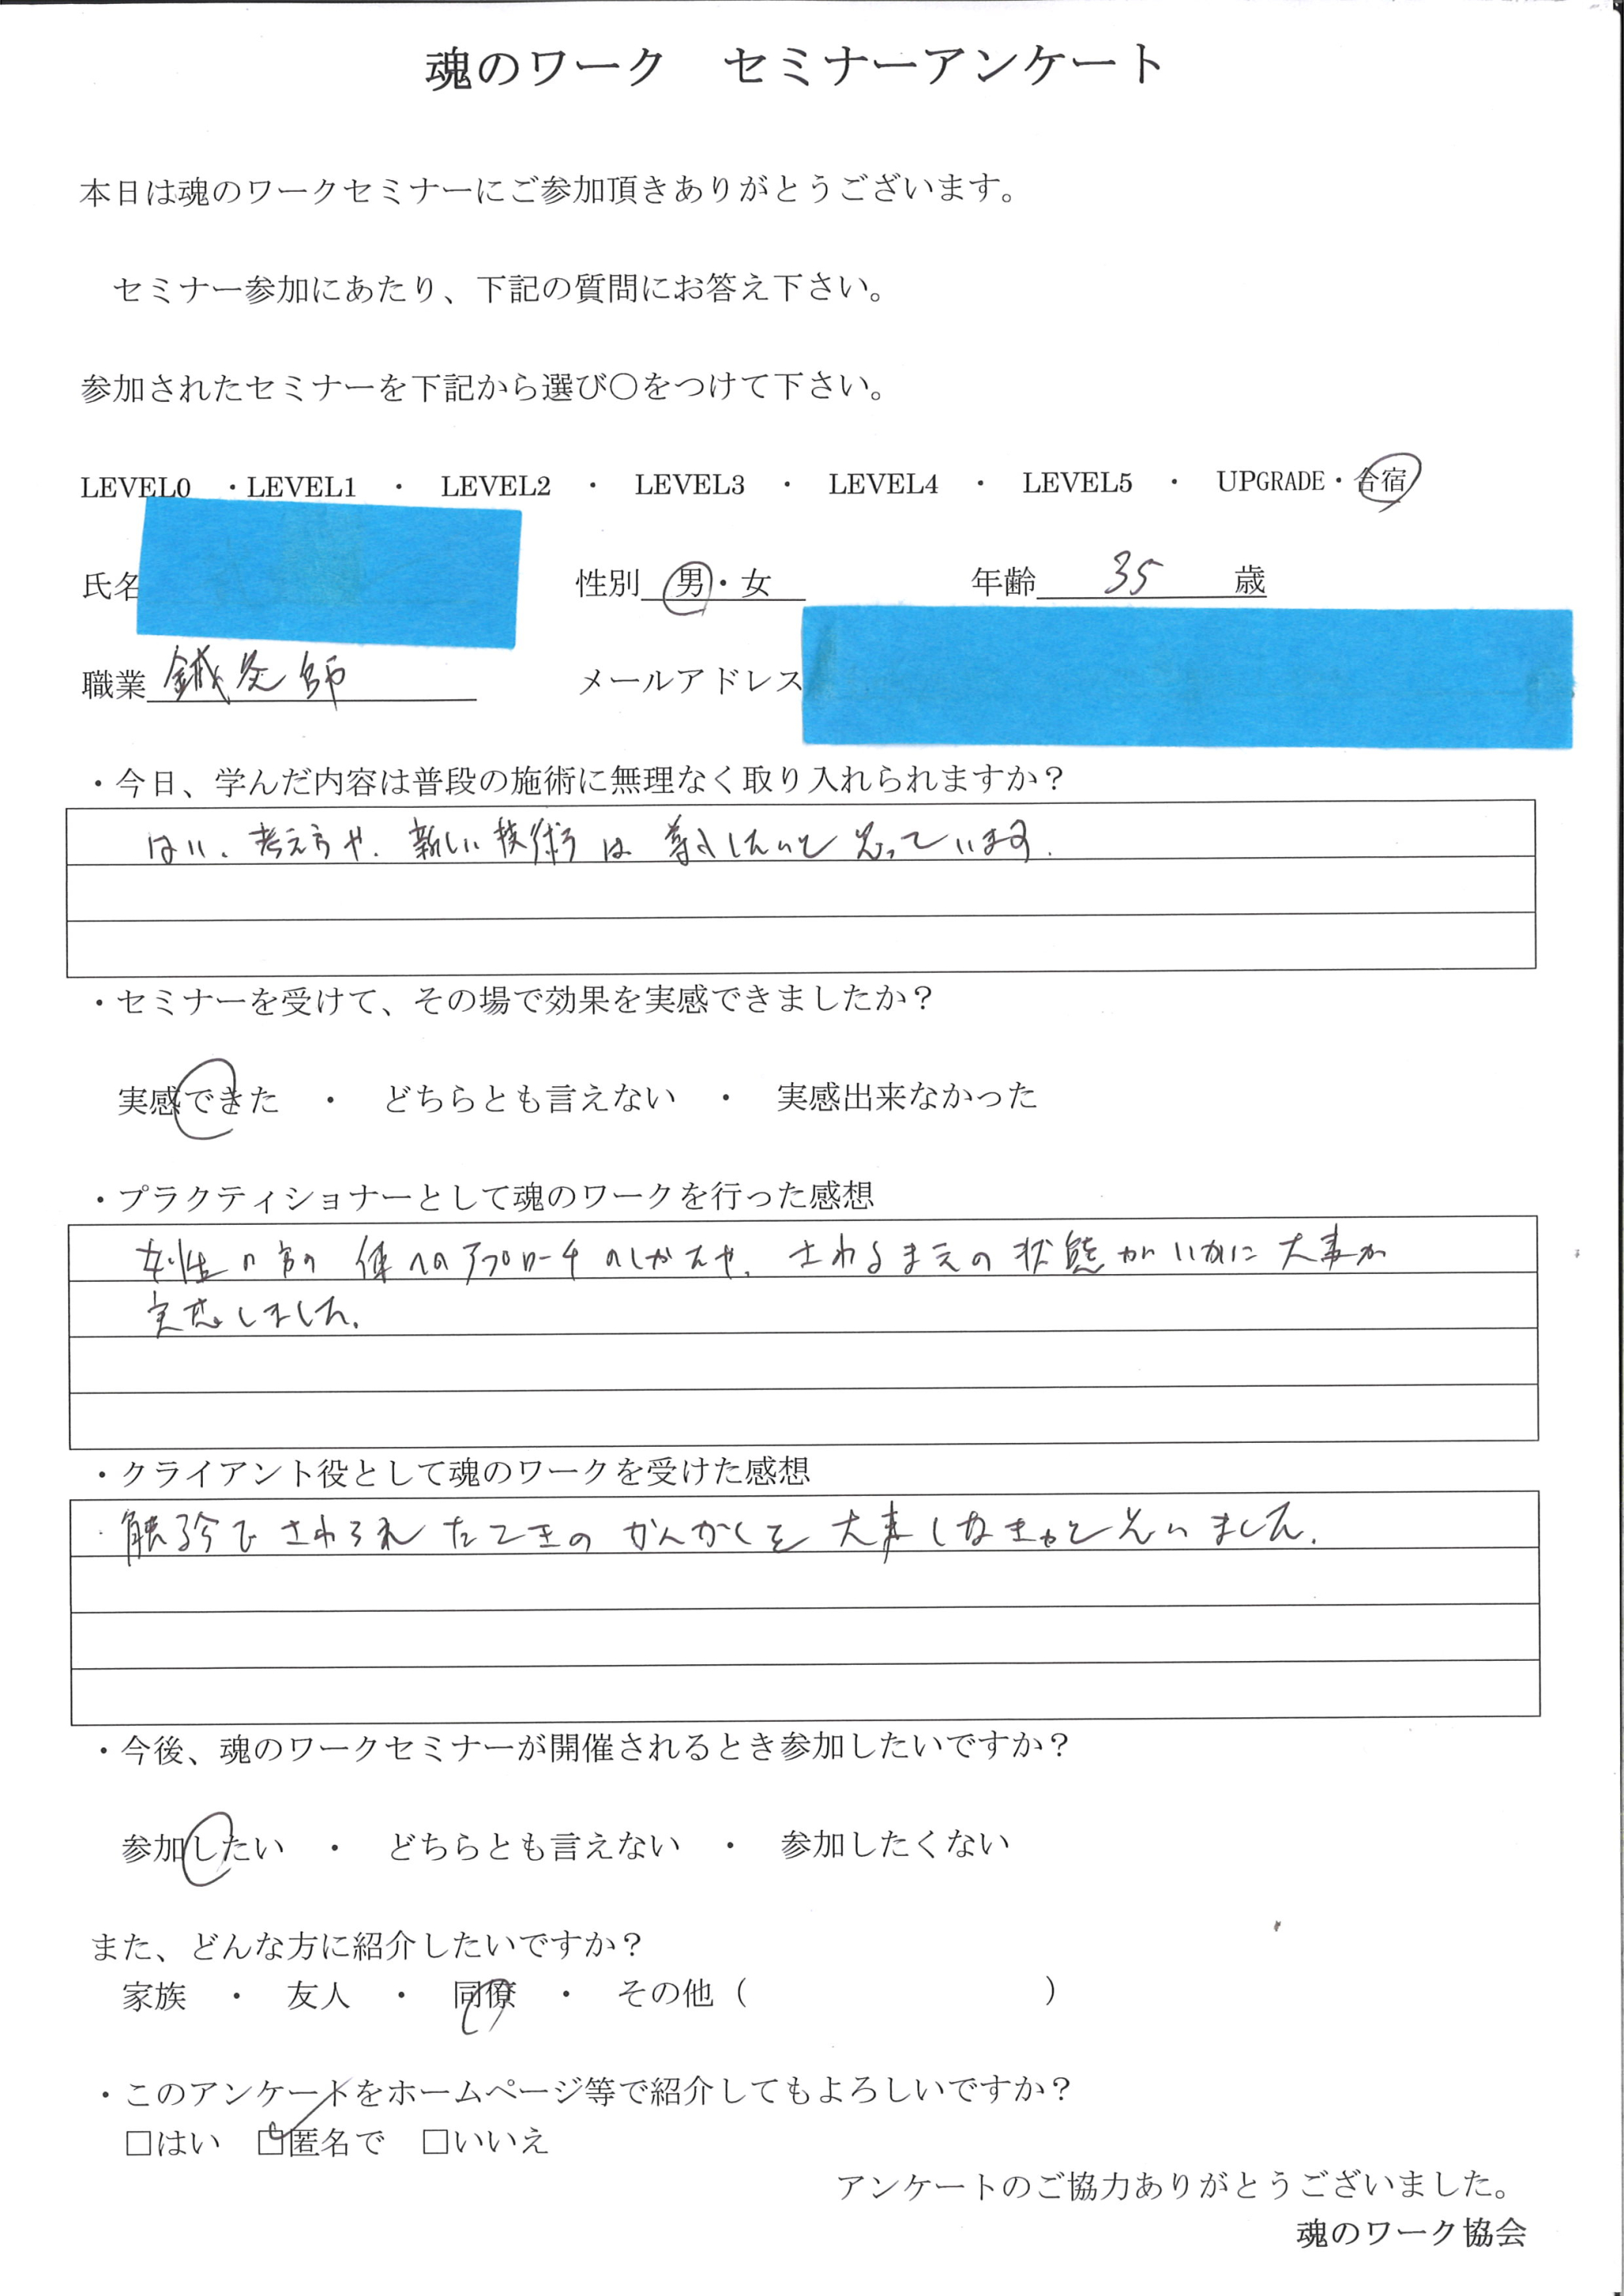 魂のワーク　セミナーアンケート
本日は魂のワークセミナーにご参加頂きありがとうございます。
セミナー参加にあたり、下記の質問にお答え下さい。
参加されたセミナーを下記から選び〇をつけて下さい。
LEVEL0　・LEVEL1　・　LEVEL2　・　LEVEL3　・　LEVEL4　・　LEVEL5　・　UPGRADE・合宿
氏名　性別　男・女　年齢　35　歳
職業　鍼灸師　メールアドレス
・今日、学んだ内容は普段の施術に無理なく取り入れられますか？
はい、考え方や、新しい技術は　したいと思っています.
・セミナーを受けて、その場で効果を実感できましたか？
実感できた　・　どちらとも言えない　・　実感出来なかった
・プラクティショナーとして魂のワークを行った感想
女性の方の体へのアプローチのしかたや、さわるまえの状態がいかに大事か
実感しました。
・クライアント役として魂のワークを受けた感想
・触診でさわられたときのかんかくを大事しなきゃと思いました.
・今後、魂のワークセミナーが開催されるとき参加したいですか？
参加したい　・　どちらとも言えない　・　参加したくない
また、どんな方に紹介したいですか？
家族　・　友人　・　同僚　・　その他（　　　　　　　　　）
・このアンケートをホームページ等で紹介してもよろしいですか？
□はい　☑匿名で　□いいえ
アンケートのご協力ありがとうございました。
魂のワーク協会